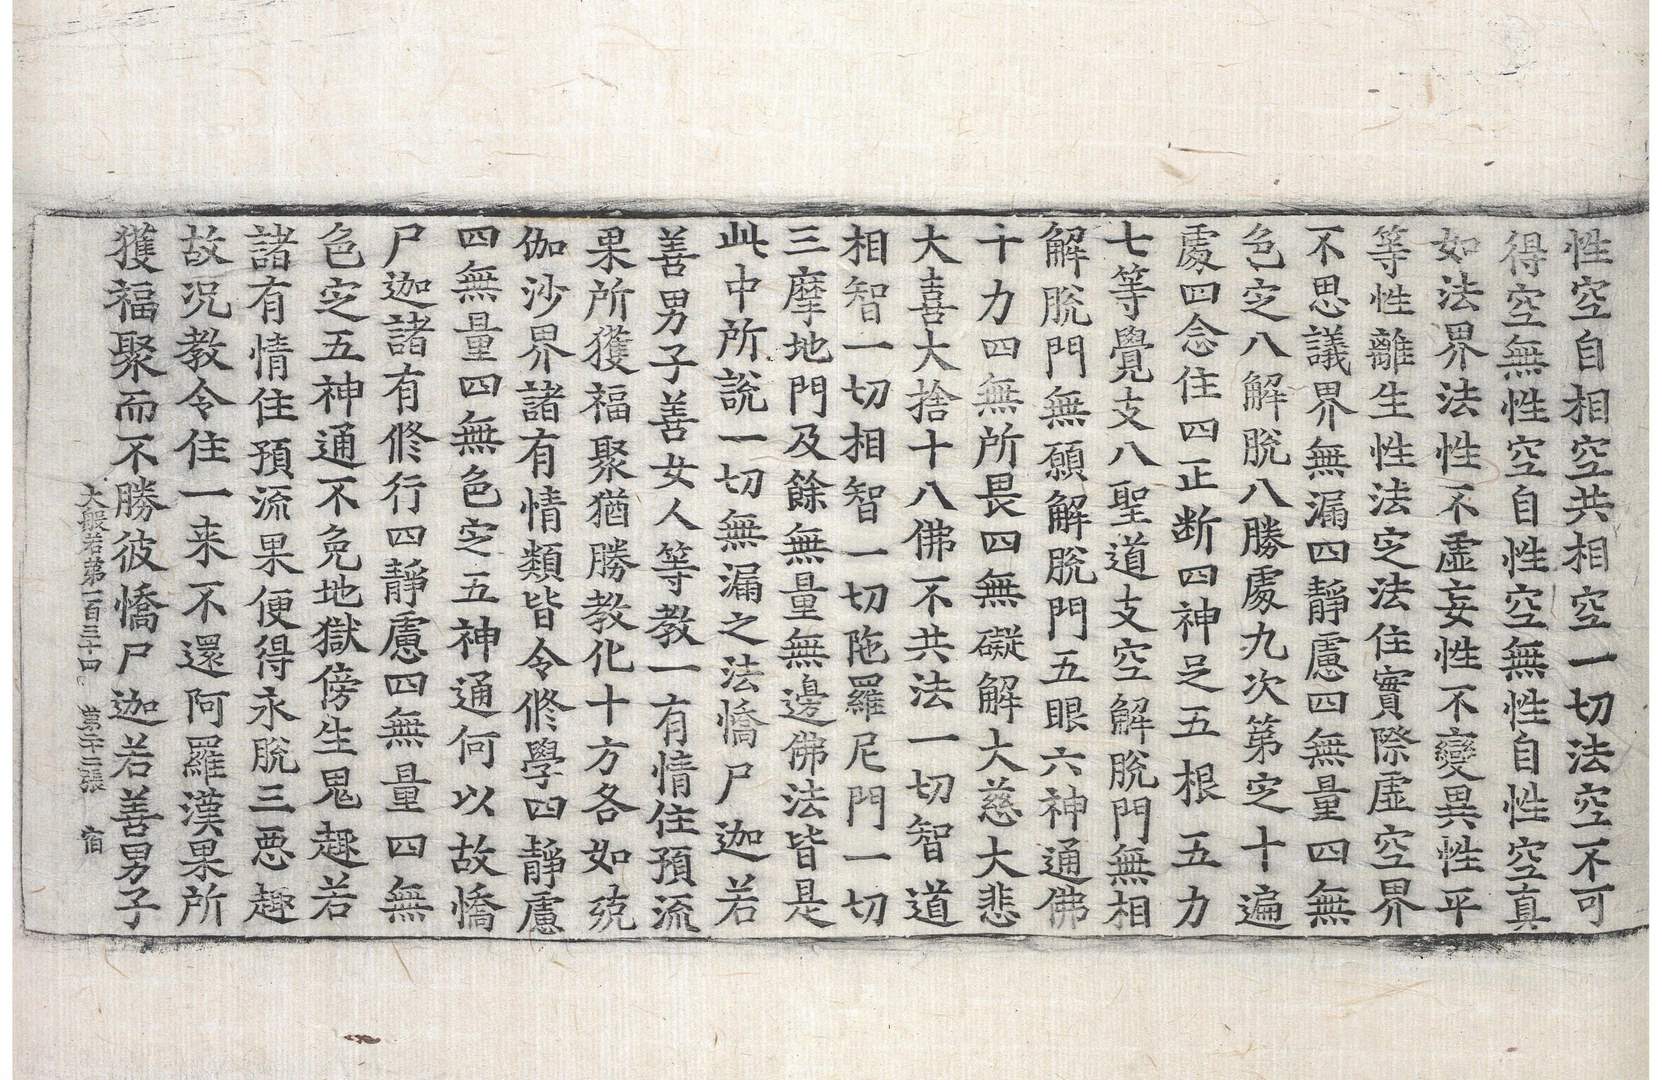 性空自相空共相空一切法空不可
得空無性空自性空無性自性空真
如法界法性不虛妄性不變異性平
等性離生性法㝎法住實際虛空界
不思議界無漏四靜慮四無量四無
色㝎八解脫八勝處九次第㝎十遍
處四念住四正断四神足五根五力
七等覺支八聖道支空解脫門無相
解脫門無願解脫門五眼六神通佛
十力四無所畏四無礙解大慈大悲
大喜大捨十八佛不共法一切智道
相智一切相智一切陁羅尼門一切
三摩地門及餘無量無邊佛法皆是
此中所說一切無漏之法憍尸迦若
善男子善女人等教一有情住預流
果所獲福聚猶勝教化十方各如殑
伽沙界諸有情類皆令修學四靜慮
四無量四無色㝎五神通何以故憍
尸迦諸有修行四靜慮四無量四無
色㝎五神通不免地獄傍生鬼趣若
諸有情住預流果便得永脫三惡趣
故况教令住一来不還阿羅漢果所
獲福聚而不勝彼憍尸迦若善男子
大般若第一百三十四 第二十二張 宿